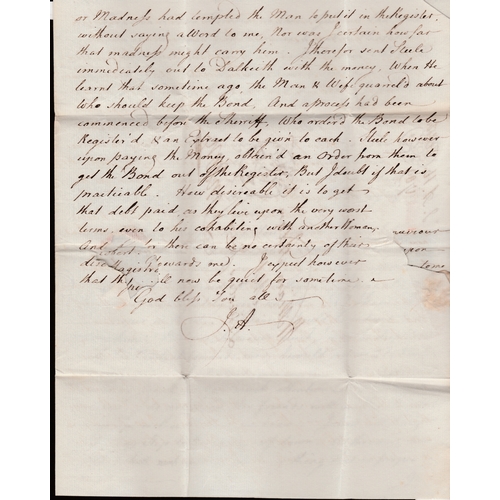 or Madness had compled the Man to put it in the Register,
without saying a Word to me, Nor was I certain how far
that madness might carry him. I therefor sent Steele
immediately out to Dalkeith with the money, When He
learnt that sometime ago, the Man & Wife quarel'd about
Who should keep the Bond, And a process had been
commenced before the Sheriff, Who orderd the Bond to be
Register'd & an Extract to be given to each. Steele however
upon paying the Money, obtain'd an Order from them to
get the Bond out of the Register, But I doubt if that is
practicable. How desireable it is to get
that debt paid, as they live upon the very worst
terms, even to his cohabiting with another Woman,
And there can be no certainty of their
towards me. I expect however
that they will now be quiet for sometime.
God bless You all
J. A.
upon